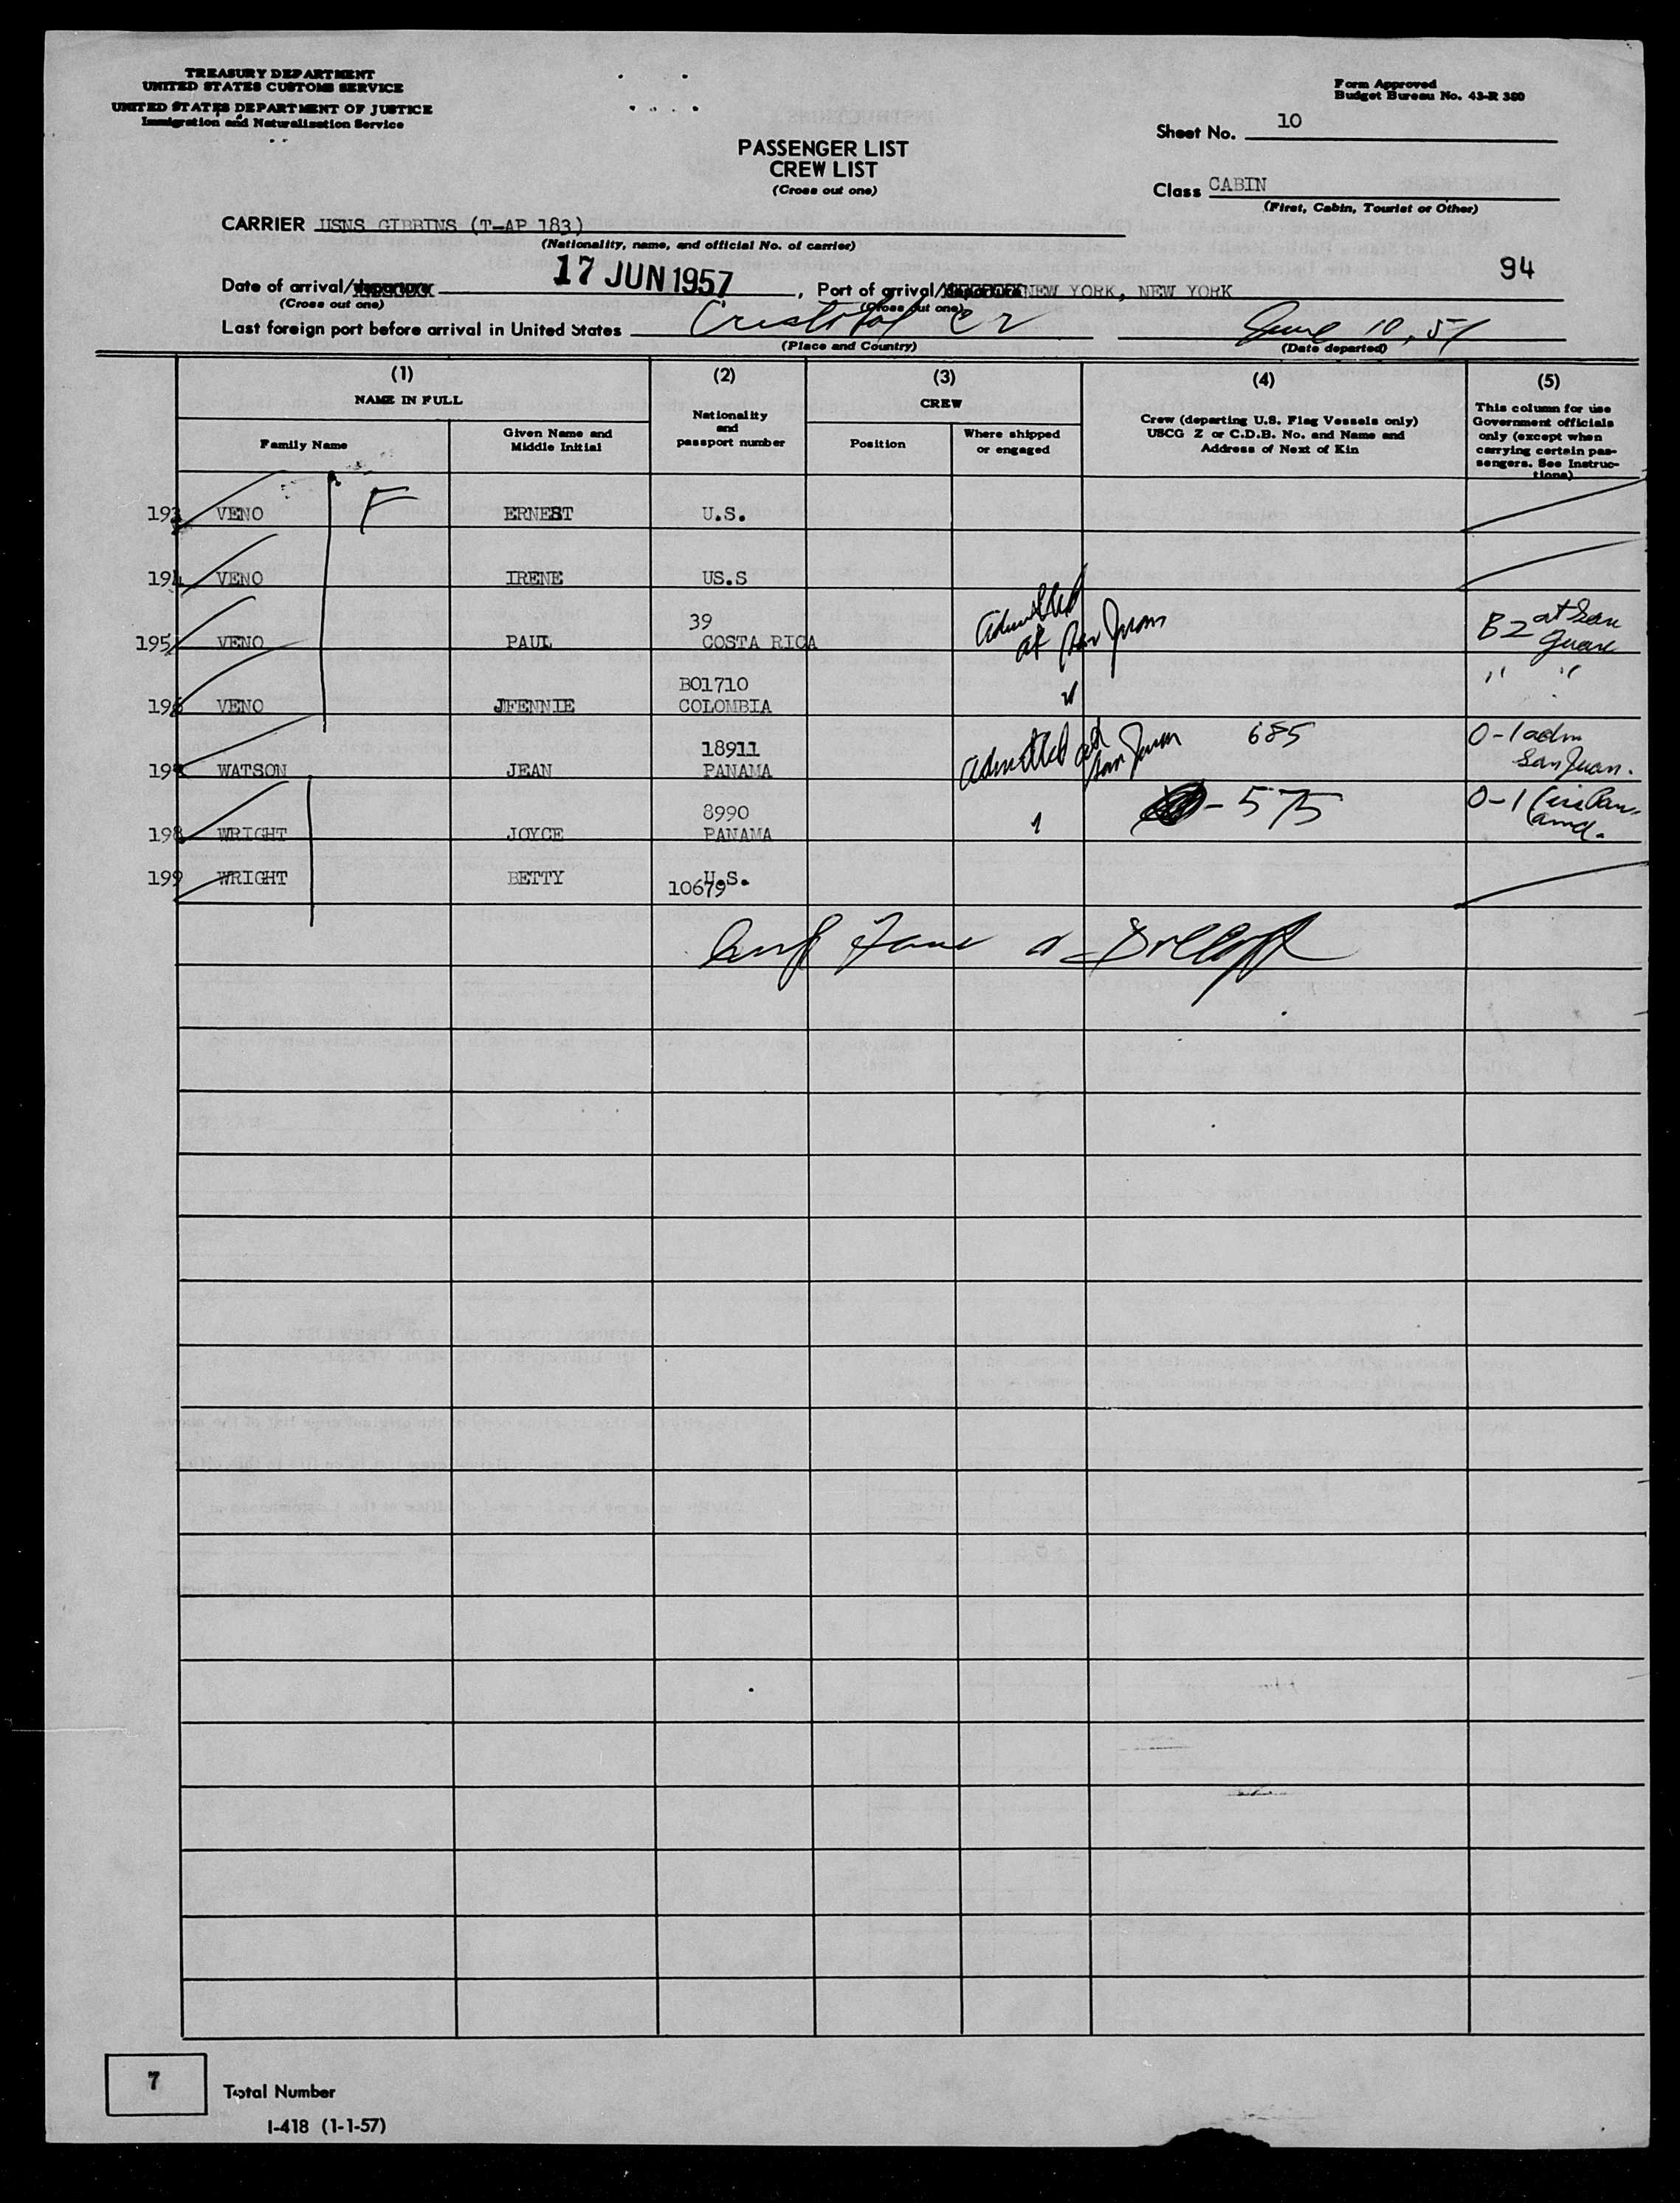 TREASURY DEPARTMENT
UNITED STATES CUSTOMS SERVICE
UNITED STATES DEPARTMENT OF JUSTICE
Immigration and Naturalization Service
Form Approved
Budget Bureau No. 43-R 360
Sheet No. 10
PASSENGER LIST
CREW LIST
(Cross out one)
Class CABIN
(First, Cabin, Tourist or Other)
CARRIER USNS GIBBINS (T-AP 183)
(Nationality, name, and official No. of carrier)
94
Date of arrival/departure 17 JUN 1957, Port of arrival/departure NEW YORK, NEW YORK
(Cross out one) (Cross out one)
Last foreign port before arrival in United States Cristobal CZ June 10, 57
(Place and Country) (Date departed)
(1) (2) (3) (4) (5)
NAME IN FULL
Nationality and passport number
CREW
Crew (departing U.S. Flag Vessels only) USCG Z or C.D.B. No. and Name and Address of Next of Kin
This column for use Government officials only (except when carrying certain passengers. See Instructions)
Family Name Given Name and Middle Initial Position Where shipped or engaged
193 VENO F ERNEST U.S.
194 VENO IRENE US.S
195 VENO PAUL 39 COSTA RICA admitted at San Juan B2 at San Juan
196 VENO JFENNIE B01710 COLOMBIA " "
WATSON JEAN 18911 PANAMA admitted at San Juan 685 O-1 adm San Juan.
198 WRIGHT JOYCE 8990 PANAMA - 575 O-1
199 WRIGHT BETTY U.S. 10679
7
Total Number
I-418 (1-1-57)